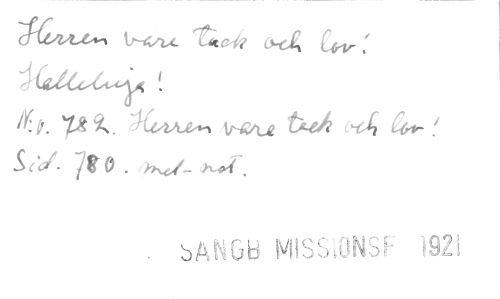 Herren vare tack och lov!
Halleluja!
N:o. 782. Herren vare tack och lov!
Sid. 780. mel-not.
SANGB MISSIONSF 1921